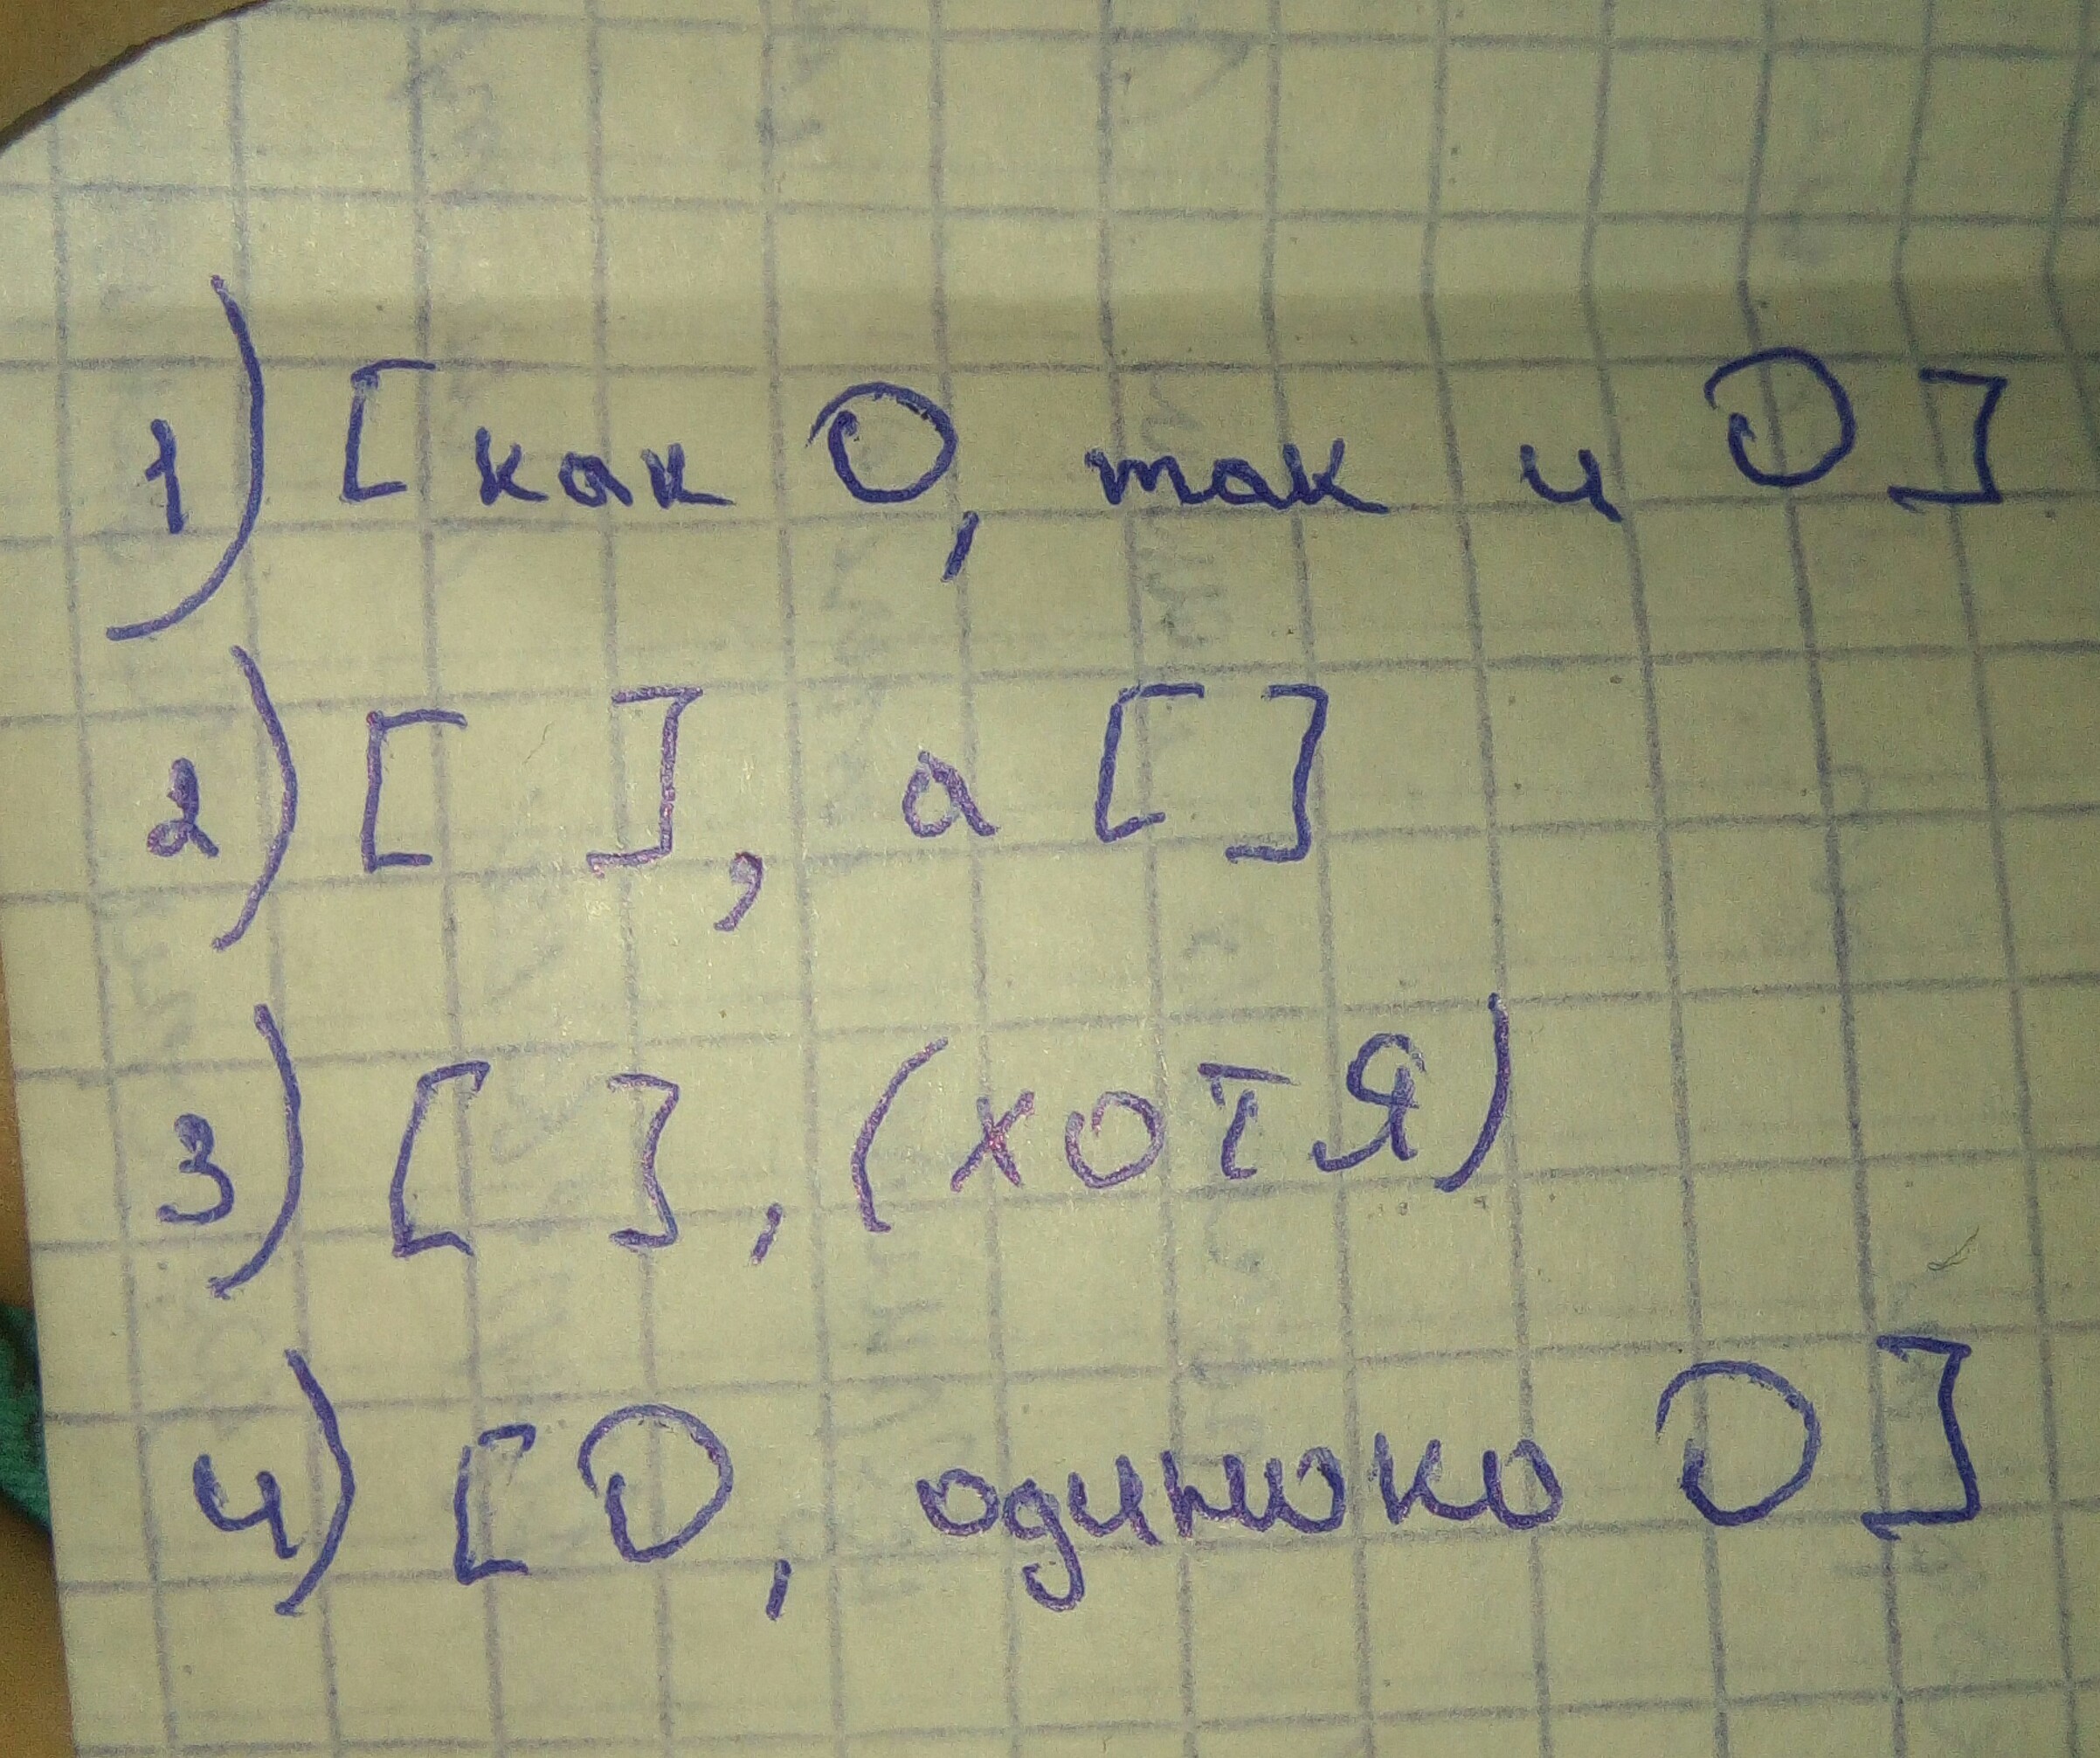 1) [как O, так и O]
2) [ ], а [ ]
3) [ ], (хотя)
4) [O, одинoко O]